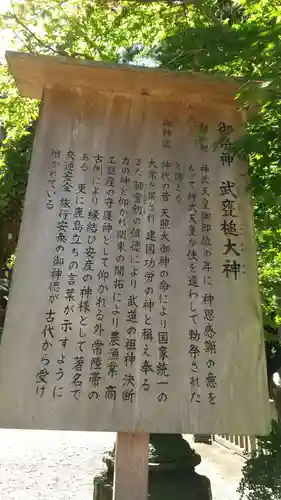 御祭神 武甕槌大神
創祀 神武天皇御即位の年に 神恩感謝の意を
もって神武天皇が使を遣わして勅祭された
と伝える
御神徳
神代の昔 天照大御神の命により国家統一の
大業を果され 建国功労の神と称え奉る
また 韴霊剣の信徳により 武道の祖神 決断
力の神と仰がれ関東の開拓により農漁業 商
工殖産の守護神として仰がれる外 常陸帯の
古例により 縁結び安産の神様として著名で
ある 更に鹿島立ちの言葉が示すように
交通安全 旅行安泰の御神徳が古代から受け
継がれている